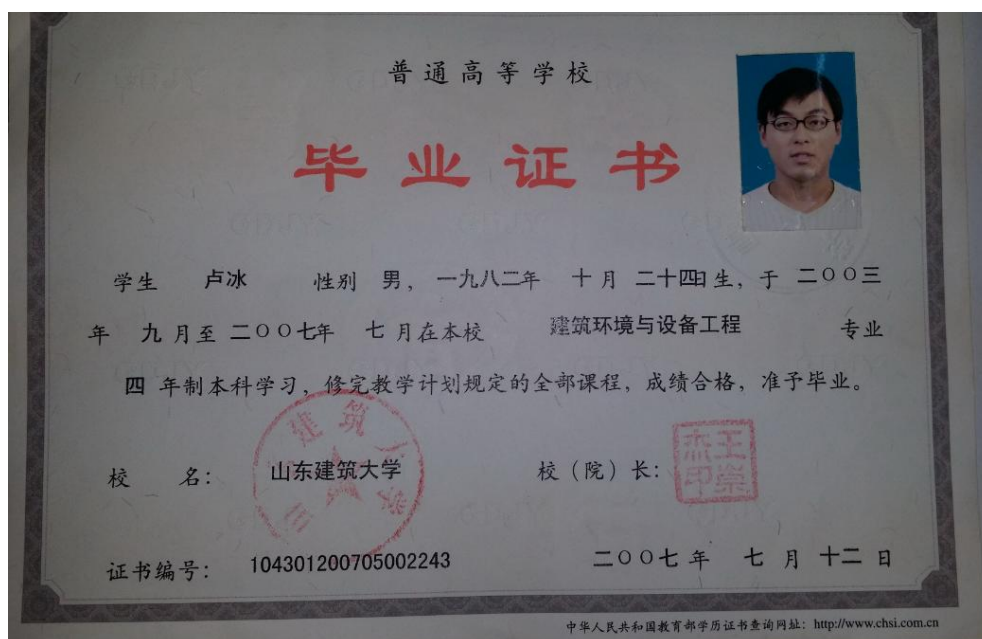 普通高等学校
毕业证书
学生 卢冰 性别 男，一九八二年 十月 二十四日生，于 二〇〇三
年 九月至二〇〇七年 七月在本校 建筑环境与设备工程 专业
四 年制本科学习，修完教学计划规定的全部课程，成绩合格，准予毕业。
校 名：山东建筑大学 校（院）长：王崇杰印
证书编号：104301200705002243 二〇〇七年 七月 十二日
中华人民共和国教育部学历证书查询网址：http://www.chsi.com.cn